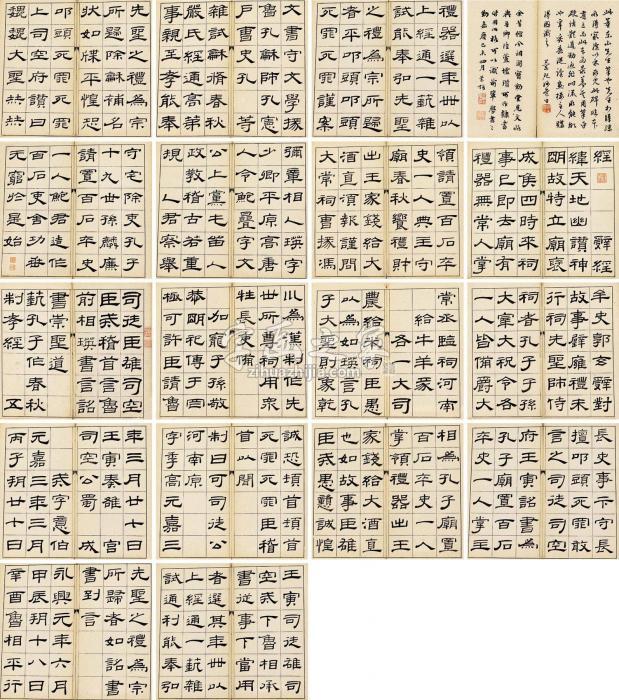 司徒臣雄司空
臣戒稽首言魯
前相瑛書言詔
書崇聖道
藝孔子作春秋
制孝經　五
經　辟經
緯天地幽讚神
明故特立廟褒
成侯四時來祠
事已即去廟有
禮器無常人掌
領請置百石卒
史一人典主守
廟春秋饗禮財
出王家錢給大
酒直須報謹問
大常祠曹掾馮
牟史郭玄辤對
故事辟雍禮未
行祠先聖師侍
祠者孔子子孫
大宰大祝令各
一人皆備爵大
常丞監祠河南
給牛羊豕
各一大司
農給米祠臣愚
以為如瑛言孔
子大聖則象乾
為漢制作先
世所尊祠用衆
牲長吏備
加寵子孫敬
恭明祀傳于罔
極可許臣請魯
相為孔子廟置
百石卒史一人
掌領禮器出王
家錢給大酒直
也如故事臣雄
臣戒愚戇誠惶
誠恐頓首頓首
死罪死罪臣稽
首以聞
制曰可司徒公
河南原
字季高元嘉三
年三月廿七日
壬寅奏雒　宮
司空公蜀　成
戒字意伯
元嘉三年三月
丙子朔廿七日
壬寅司徒雄司
空戒下魯相承
書從事下當用
者選其年卌以
上經通一藝雜
試通利能奉弘
先聖之禮為宗
所歸者如詔書
書到言
永興元年六月
甲辰朔十八日
辛酉魯相平行
長史事卞守長
擅叩頭死罪敢
言之司徒司空
府壬寅詔書為
孔子廟置百石
卒史一人掌主
禮器選年卌以
上經通一藝雜
試能奉弘先聖
之禮為宗所歸
者平叩頭叩頭
死罪死罪謹案
文書守文學掾
魯孔龢師孔憲
戶曹史孔覽等
雜試龢脩春秋
嚴氏經通高第
事親至孝能奉
先聖之禮為宗
所歸除龢補名
狀如牒平惶恐
叩頭死罪死罪
上司空府讚曰
巍巍大聖赫赫
彌章相乙瑛字
少卿平原高唐
人令鮑疊字文
公上黨屯留人
政教稽古若重
規　乙君察舉
守宅除吏孔子
十九世孫麟廉
請置百石卒史
一人鮑君造作
百石吏舍功垂
無窮於是始